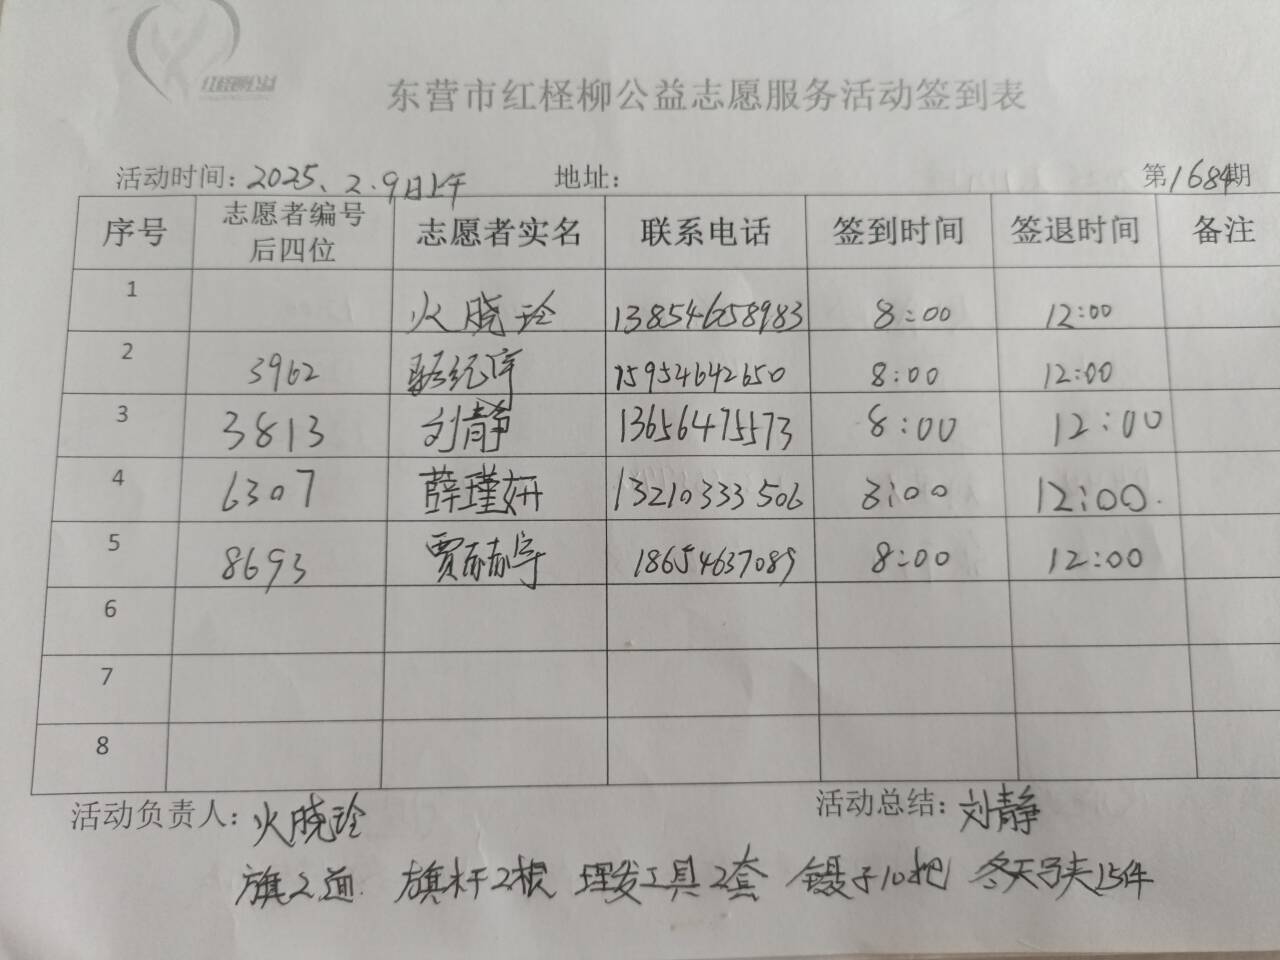 红柽柳公益
东营市红柽柳公益志愿服务活动签到表
活动时间：2025、2.9日上午 地址： 第1684期
序号 志愿者编号后四位 志愿者实名 联系电话 签到时间 签退时间 备注
1 火晓玲 13854658983 8:00 12:00
2 3962 骆纪宇 15954642650 8:00 12:00
3 3813 刘静 13656475573 8:00 12:00
4 6307 薛瑾妍 13210333506 8:00 12:00.
5 8693 贾赫宇 18654637089 8:00 12:00
6
7
8
活动负责人：火晓玲 活动总结：刘静
旗2面. 旗杆2根 理发工具2套 镊子10把 冬天马夹15件